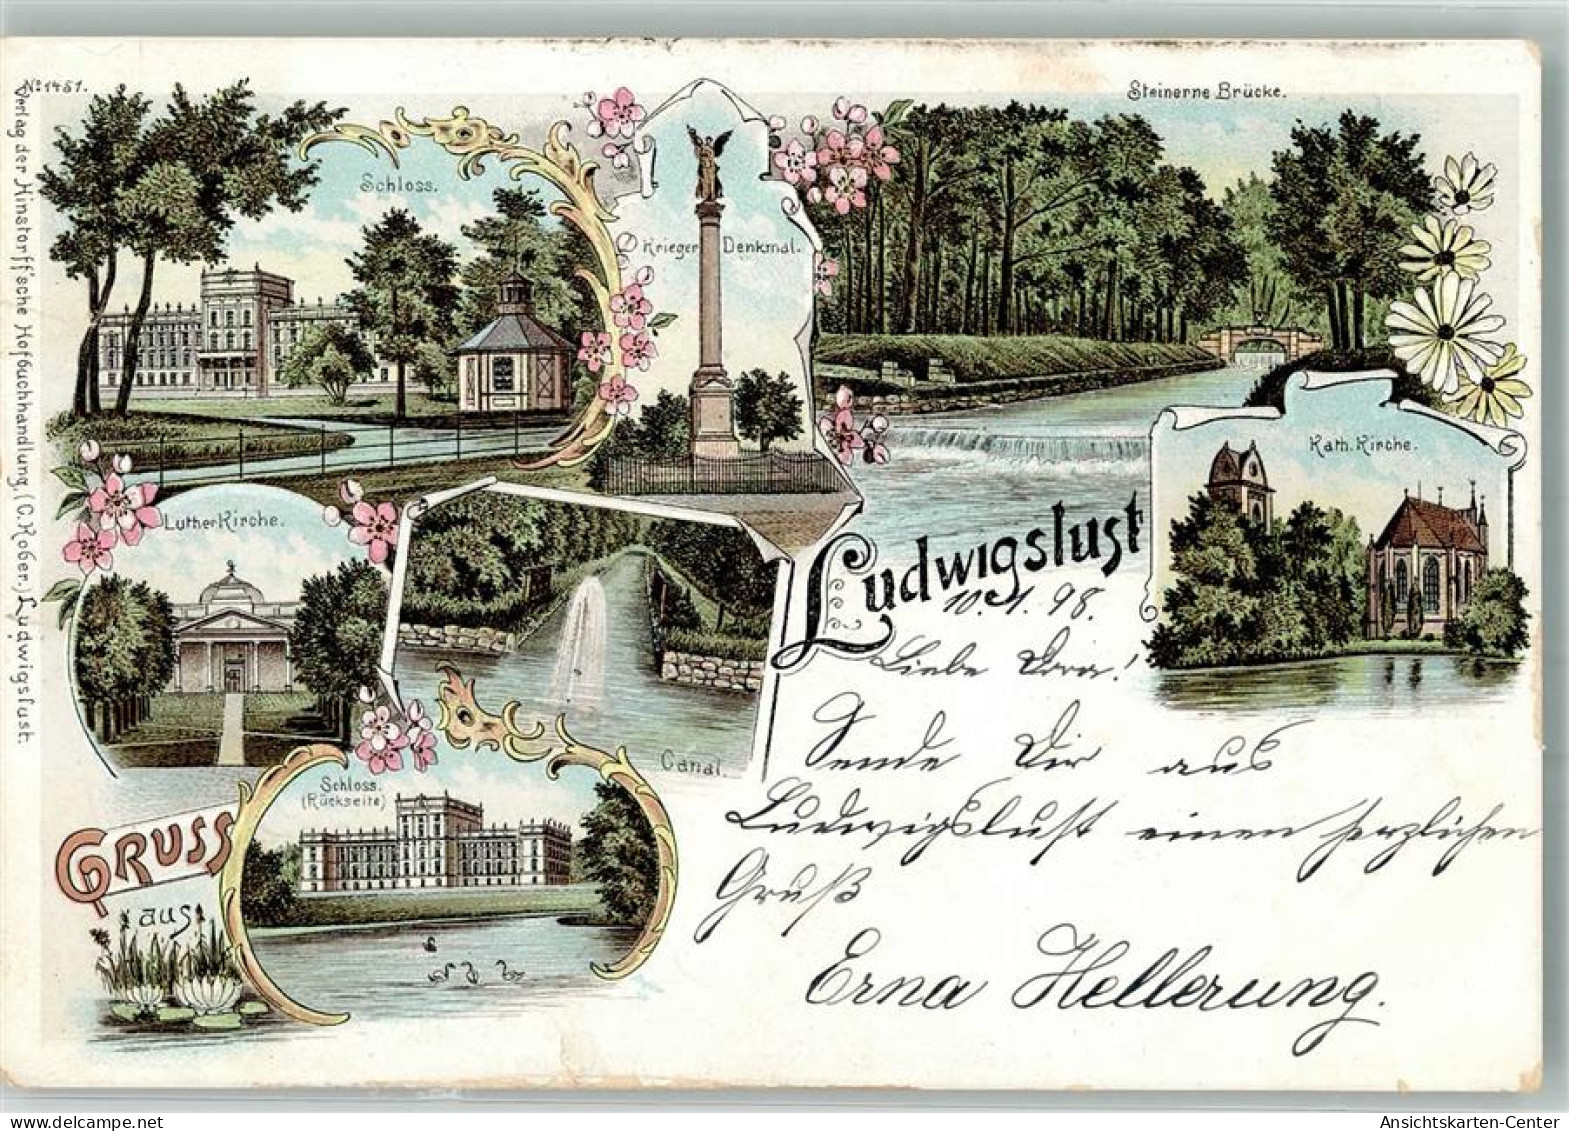 No 1451.
Verlag der Hinstorff'sche Hofbuchhandlung, (C. Kober.) Ludwigslust.
Schloss.
Krieger Denkmal.
Steinerne Brücke.
Kath. Kirche.
LutherKirche.
Canal.
Schloss.
(Rückseite)
GRUSS
aus
Ludwigslust
10. 1. 98.
Liebe Dora!
Sende Dir aus
Ludwigslust einen herzlichen
Gruß
Erna Hellerung.
oldthing.de
Ansichtskarten-Center